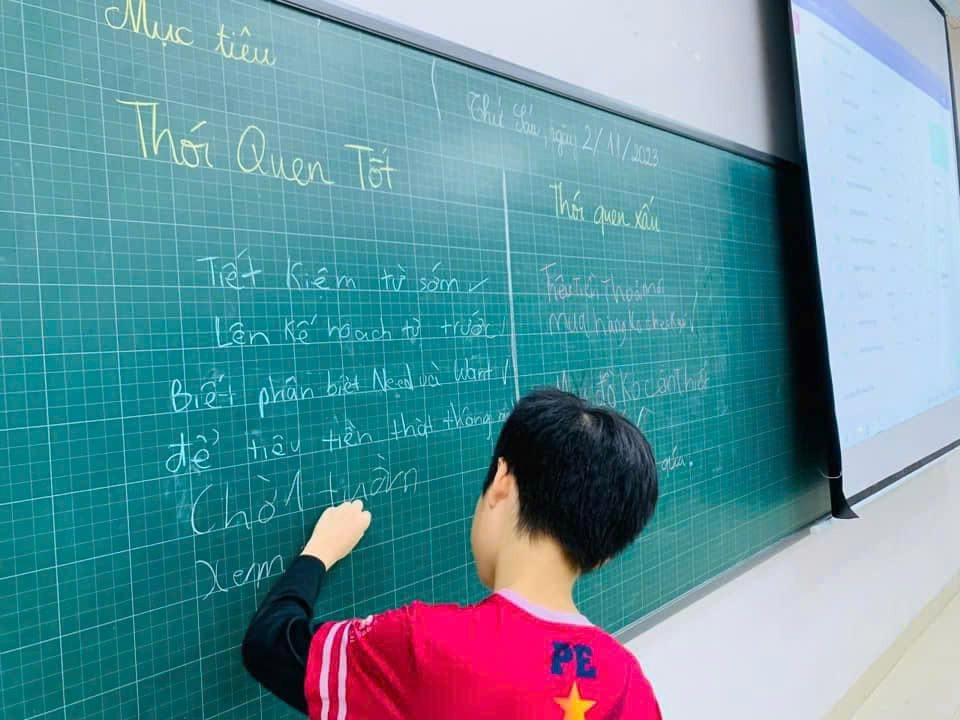 Mục tiêu
Thứ Sáu, ngày 2/11/2023
Thói Quen Tốt
Tiết Kiệm từ sớm ✓
Lên Kế hoạch từ trước
Biết phân biệt Need và Want ✓
để tiêu tiền thật thông
Chờ 1 tuần
Xem
Thói quen xấu
Tiêu tiền Thoải mái
mua hàng Ko check giá ✓
đồ Ko cần Thiết
PE